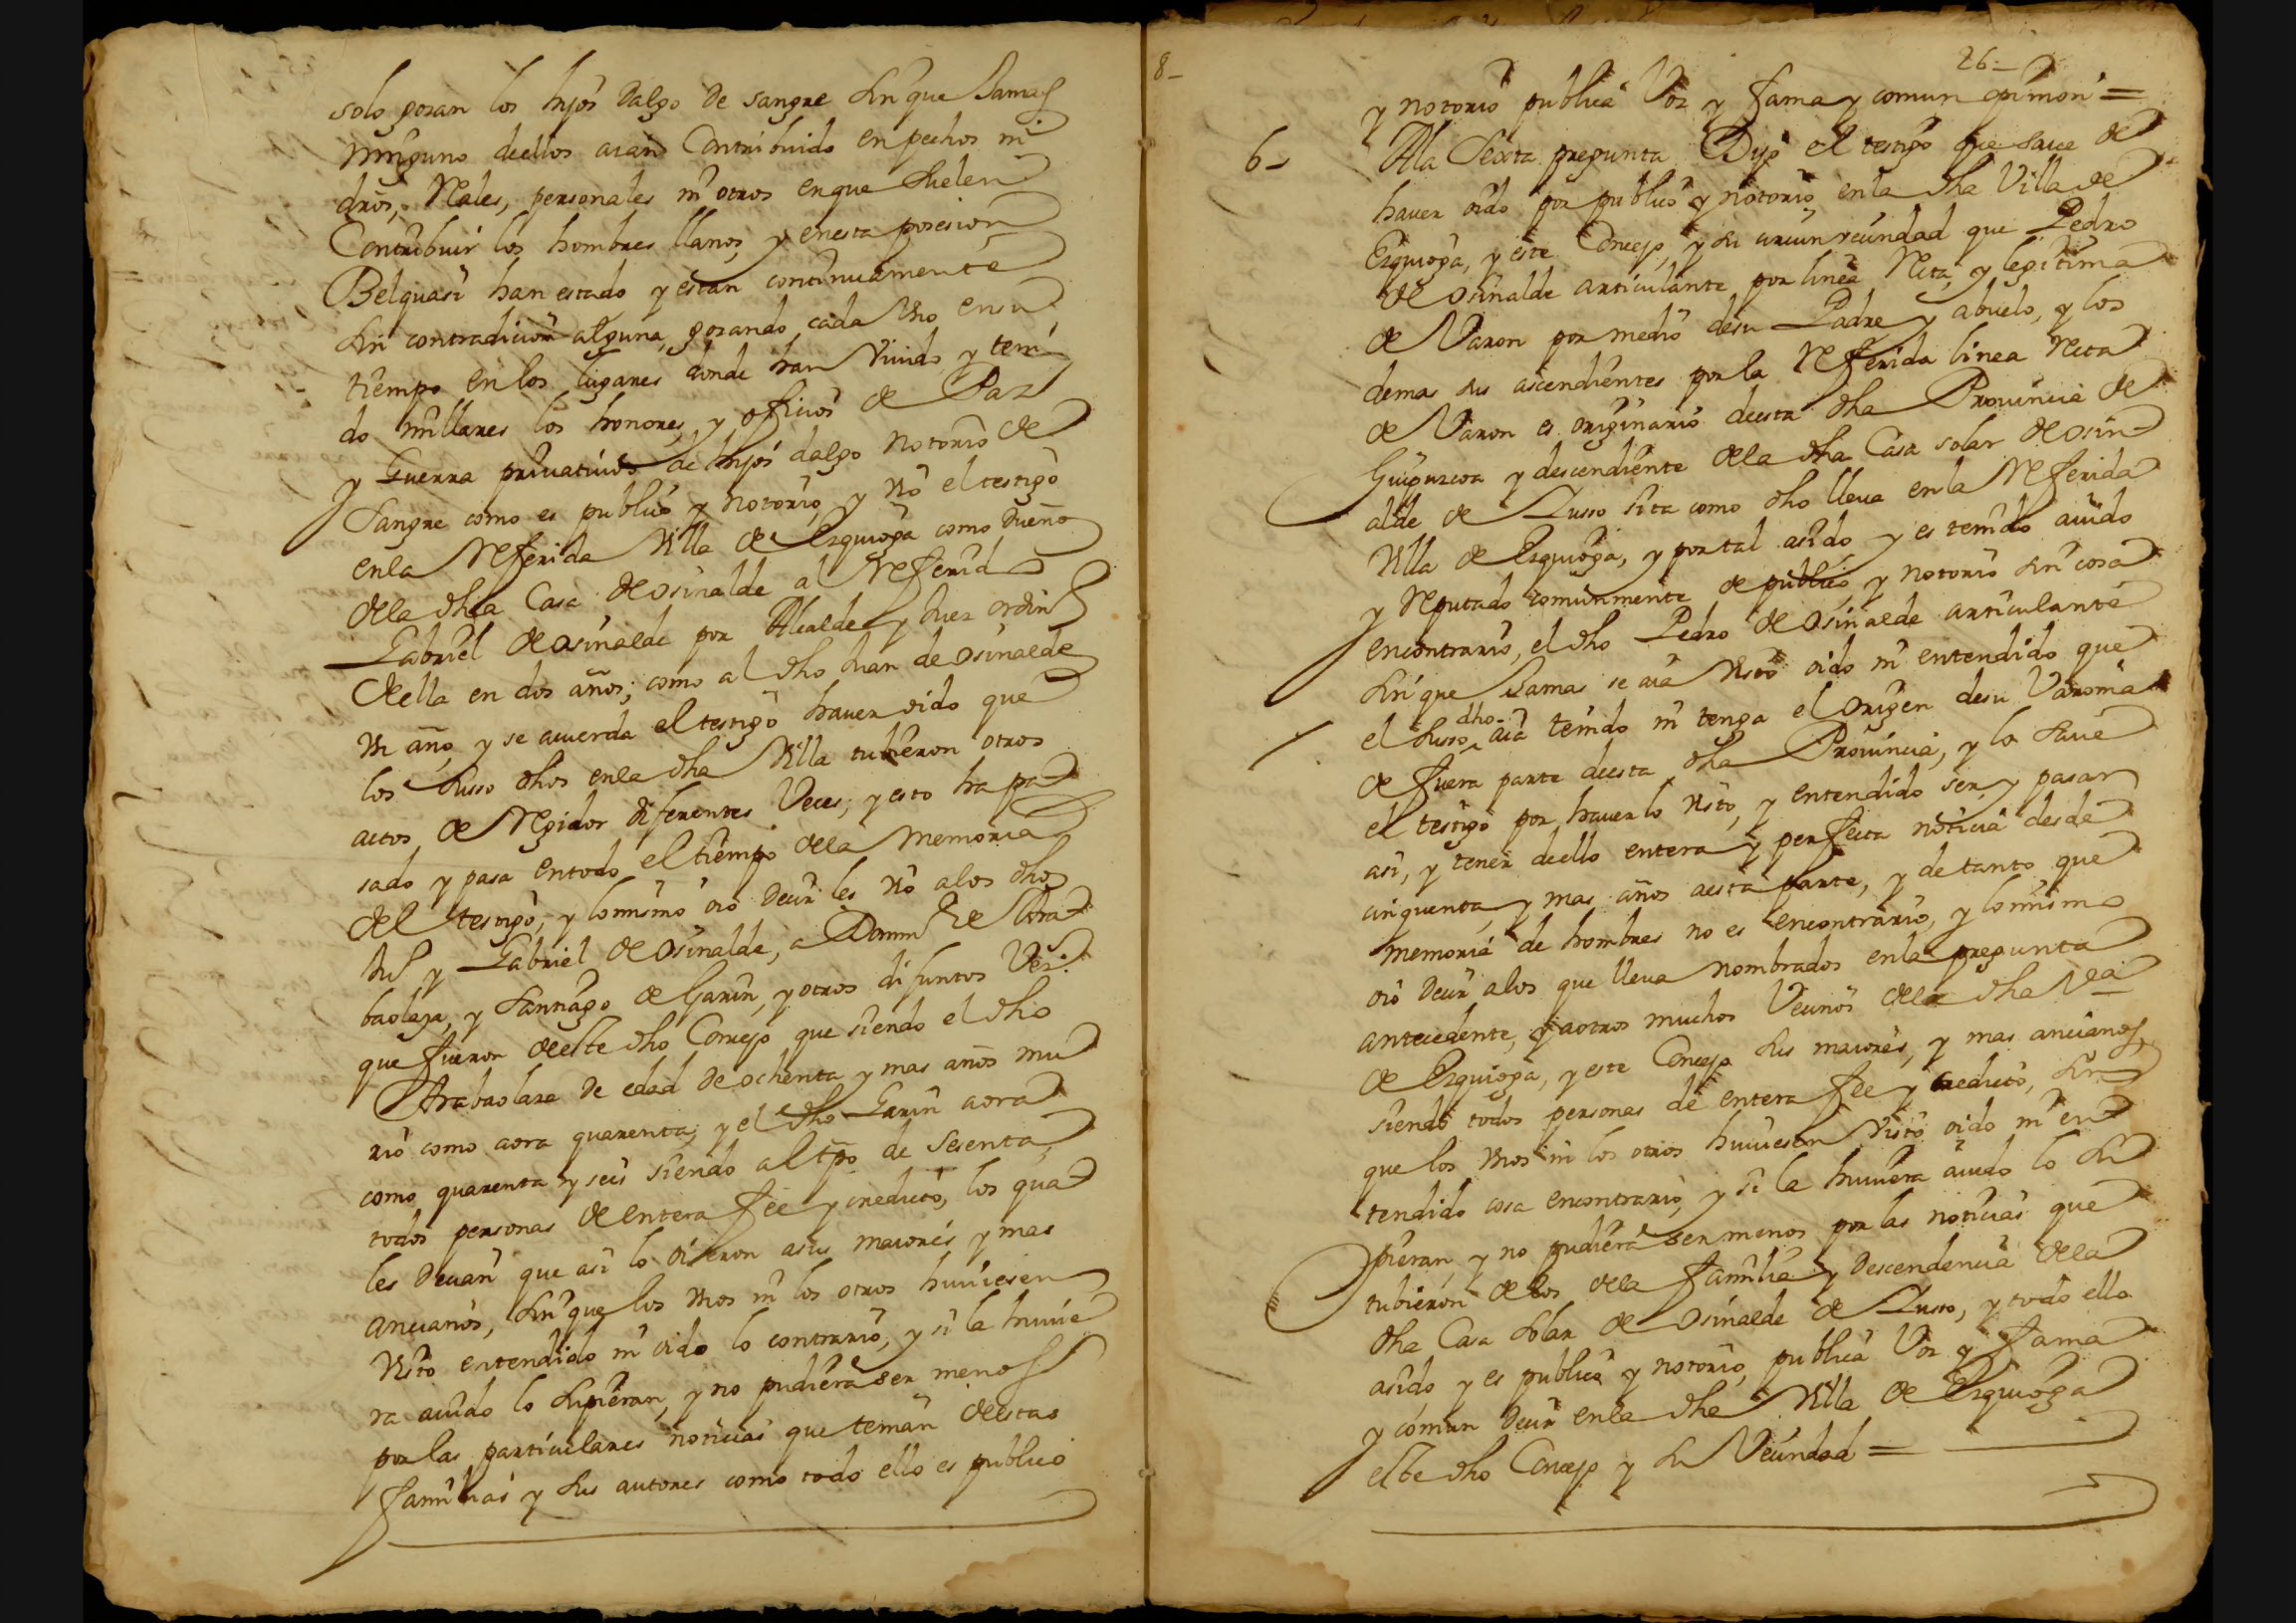 solo gozan los hijos dalgo de sangre sin que Jamas
ninguno deellos aian Contribuido en pechos ni
dros, Reales, personales ni otros en que suelen
Contribuir los hombres llanos, y enesta posesion
Belquasi han estado y estan continuamente
sin contradicion alguna, gozando cada Uno ensu
tiempo en los lugares donde han Viuido y teni
do millares los honores y oficios de Paz
y Guerra priuatiuos de hijos dalgo notorio de
sangre como es publico y notorio, y Vio el testigo
enla Referida Villa de Ezquioga como dueño
dela dha Casa de osinalde al Referid
Gabriel de osinalde por Alcalde y Juez ordin
deella en dos años; como al dho Juan de osinalde
Un año, y se acuerda el testigo hauer oido que
los suso dhos enla dha Villa tubieron otros
actos de Regidor diferentes Veces; y esto ha pa
sado y pasa entodo el tiempo dela memoria
del testigo, y lo mismo oio decir les Vio alos dhos
Ju y Gabriel de osinalde, a Domin de Arra
baolaza, y Santiago de Garin, y otros difuntos Vez.
que fueron deeste dho Concejo que siendo el dho
Arrabaolaza de edad de ochenta y mas años mu
rio como aora quarenta; y el dho Garin aora
como quarenta y seis siendo al tpo de sesenta,
todos personas de entera fee y credito, los qua
les decian que asi lo oieron asus maiores y mas
ancianos, sin que los Unos ni los otros huuiesen
Visto entendido ni oido lo contrario, y si la huuie
ra auido lo supieran, y no pudiera ser menos
por las particulares noticias que tenian deestas
familias y sus autores como todo ello es publico
8-
26-
y notorio publica Voz y fama y comun opinion =
6-
Ala Sexta pregunta Dijo el testigo que saue de
hauer oido por publico y notorio enla dha Villa de
Ezquioga, y este Concejo, y su circunvecindad que Pedro
de osinalde articulante por linea Recta, y legitima
de Varon por medio desu Padre y abuelo, y los
demas sus ascendientes por la Referida linea Recta
de Varon es originario deesta dha Prouincia de
Guipuzcoa y descendiente dela dha Casa solar de osin
alde de Suso sita como dho lleua enla Referida
Villa de Ezquioga, y por tal asido y es tenido auido
y Reputado comunmente de publico, y notorio sin cosa
encontrario, el dho Pedro de osinalde articulante
sin que Jamas se aia Visto oido ni entendido que
el suso dho aia tenido ni tenga el origen desu Varonia
de fuera parte deesta dha Prouincia, y lo saue
el testigo por hauerlo Visto, y entendido ser, y pasar
asi, y tener deello entera y perfecta noticia desde
cinquenta y mas años aesta parte, y de tanto que
memoria de hombres no es encontrario, y lo mismo
oio decir alos que lleua nombrados enla pregunta
antecedente, y aotros muchos Vecinos dela dha Va
de Ezquioga, y este Concejo sus maiores, y mas ancianos,
siendo todos personas de entera fee y credito, sin
que los Unos ni los otros huuiesen Visto oido ni en
tendido cosa encontrario, y si la huuiera auido lo su
pieran y no pudiera ser menos por las noticias que
tubieron de los dela familia y Descendencia dela
dha Casa solar de osinalde de Suso, y todo ello
asido y es publico y notorio, publica Voz y fama
y comun decir enla dha Villa de Ezquioga
este dho Concejo y su Vecindad =